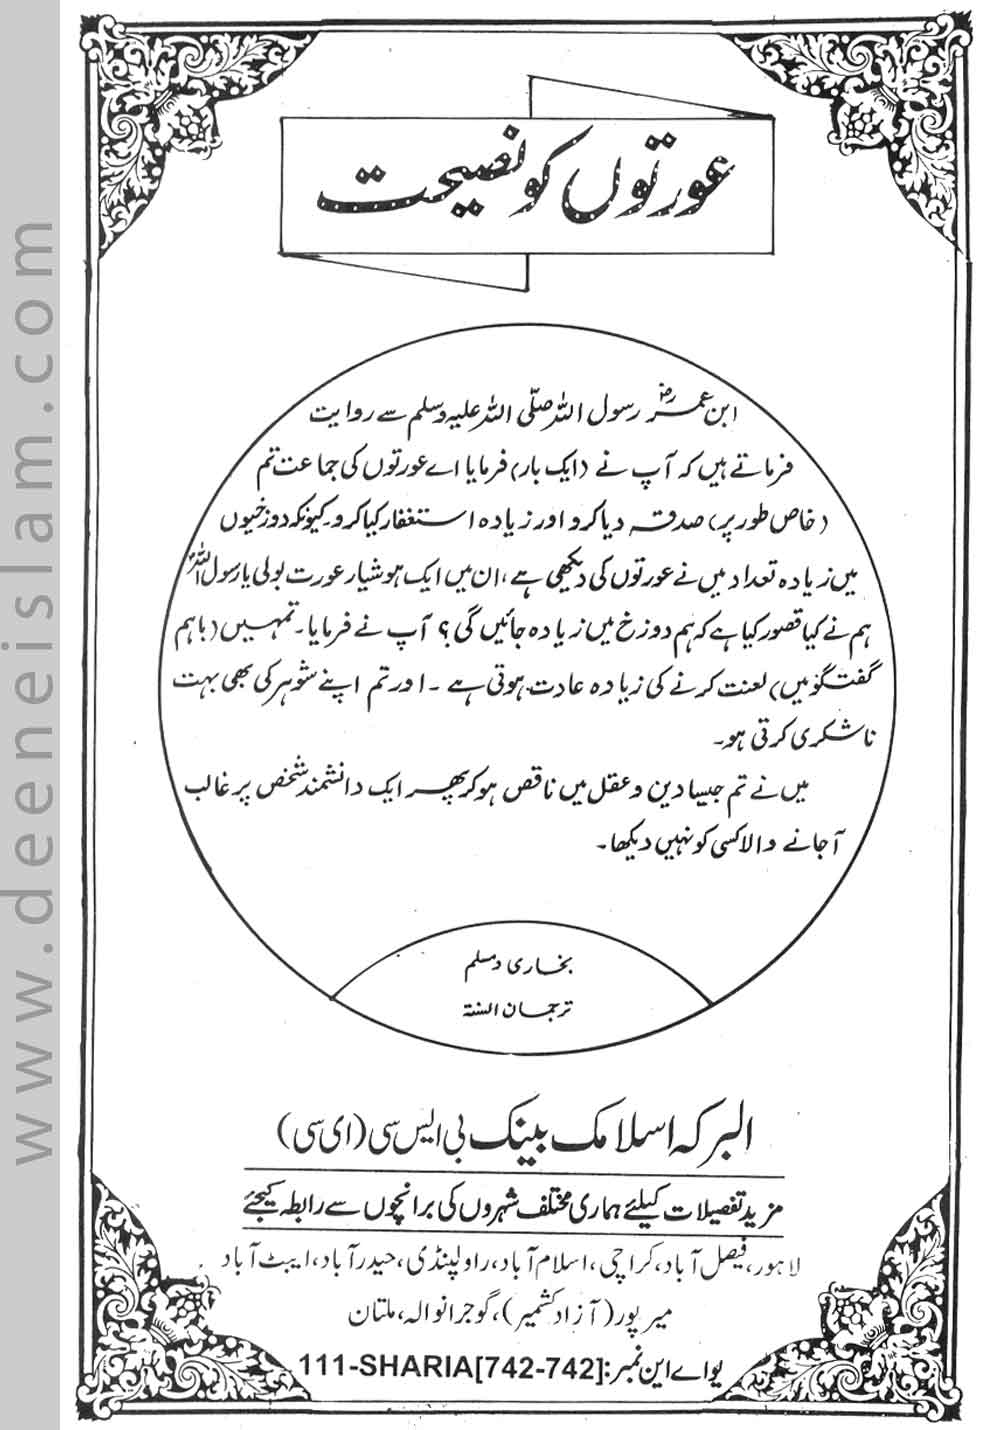 www.deeneislam.com
عورتوں کو نصیحت
ابن عمرؓ رسول اللہ صلّی اللہ علیہ وسلم سے روایت
فرماتے ہیں کہ آپ نے (ایک بار) فرمایا اے عورتوں کی جماعت تم
(خاص طور پر) صدقہ دیا کرو اور زیادہ استغفار کیا کرو۔ کیونکہ دوزخیوں
میں زیادہ تعداد میں نے عورتوں کی دیکھی ہے، ان میں ایک ہوشیار عورت بولی یا رسول اللہ
ہم نے کیا قصور کیا ہے کہ ہم دوزخ میں زیادہ جائیں گی؟ آپ نے فرمایا۔ تمہیں (باہم
گفتگو میں) لعنت کرنے کی زیادہ عادت ہوتی ہے۔ اور تم اپنے شوہر کی بھی بہت
ناشکری کرتی ہو۔
میں نے تم جیسا دین و عقل میں ناقص ہو کر پھر ایک دانشمند شخص پر غالب
آجانے والا کسی کو نہیں دیکھا۔
بخاری و مسلم
ترجمان السنۃ
البرکہ اسلامک بینک بی ایس سی (ای سی)
مزید تفصیلات کیلئے ہماری مختلف شہروں کی برانچوں سے رابطہ کیجئے
لاہور، فیصل آباد، کراچی، اسلام آباد، راولپنڈی، حیدرآباد، ایبٹ آباد
میرپور (آزاد کشمیر)، گوجرانوالہ، ملتان
یو اے این نمبر: 111-SHARIA[742-742]